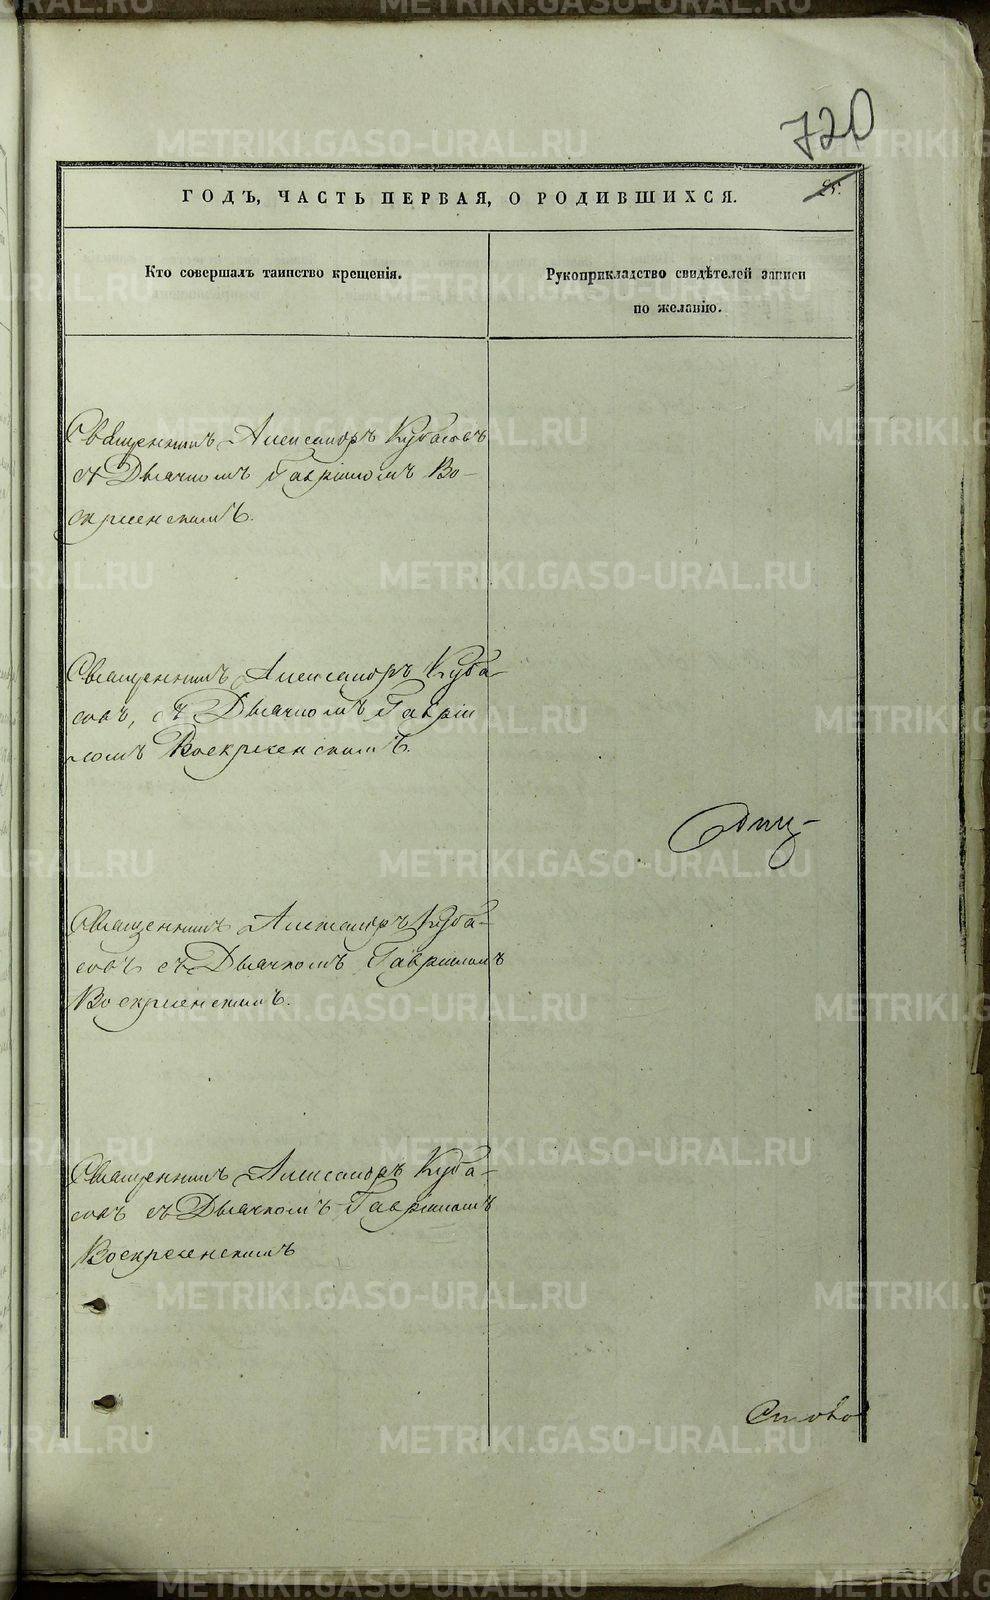 720
25.
ГОДЪ, ЧАСТЬ ПЕРВАЯ, О РОДИВШИХСЯ.
Кто совершалъ таинство крещенія.
Рукоприкладство свидѣтелей записи
по желанію.
Священникъ Александръ Кубасовъ
съ Дьячкомъ Гавріиломъ Во-
скресенскимъ.
Священникъ Александръ Куба-
совъ, съ Дьячкомъ Гавріи
ломъ Воскресенскимъ.
Священникъ Александръ Куба-
совъ съ Дьячкомъ Гавріиломъ
Воскресенскимъ.
Священникъ Александръ Куба-
совъ съ Дьячкомъ Гавріиломъ
Воскресенскимъ
METRIKI.GASO-URAL.RU